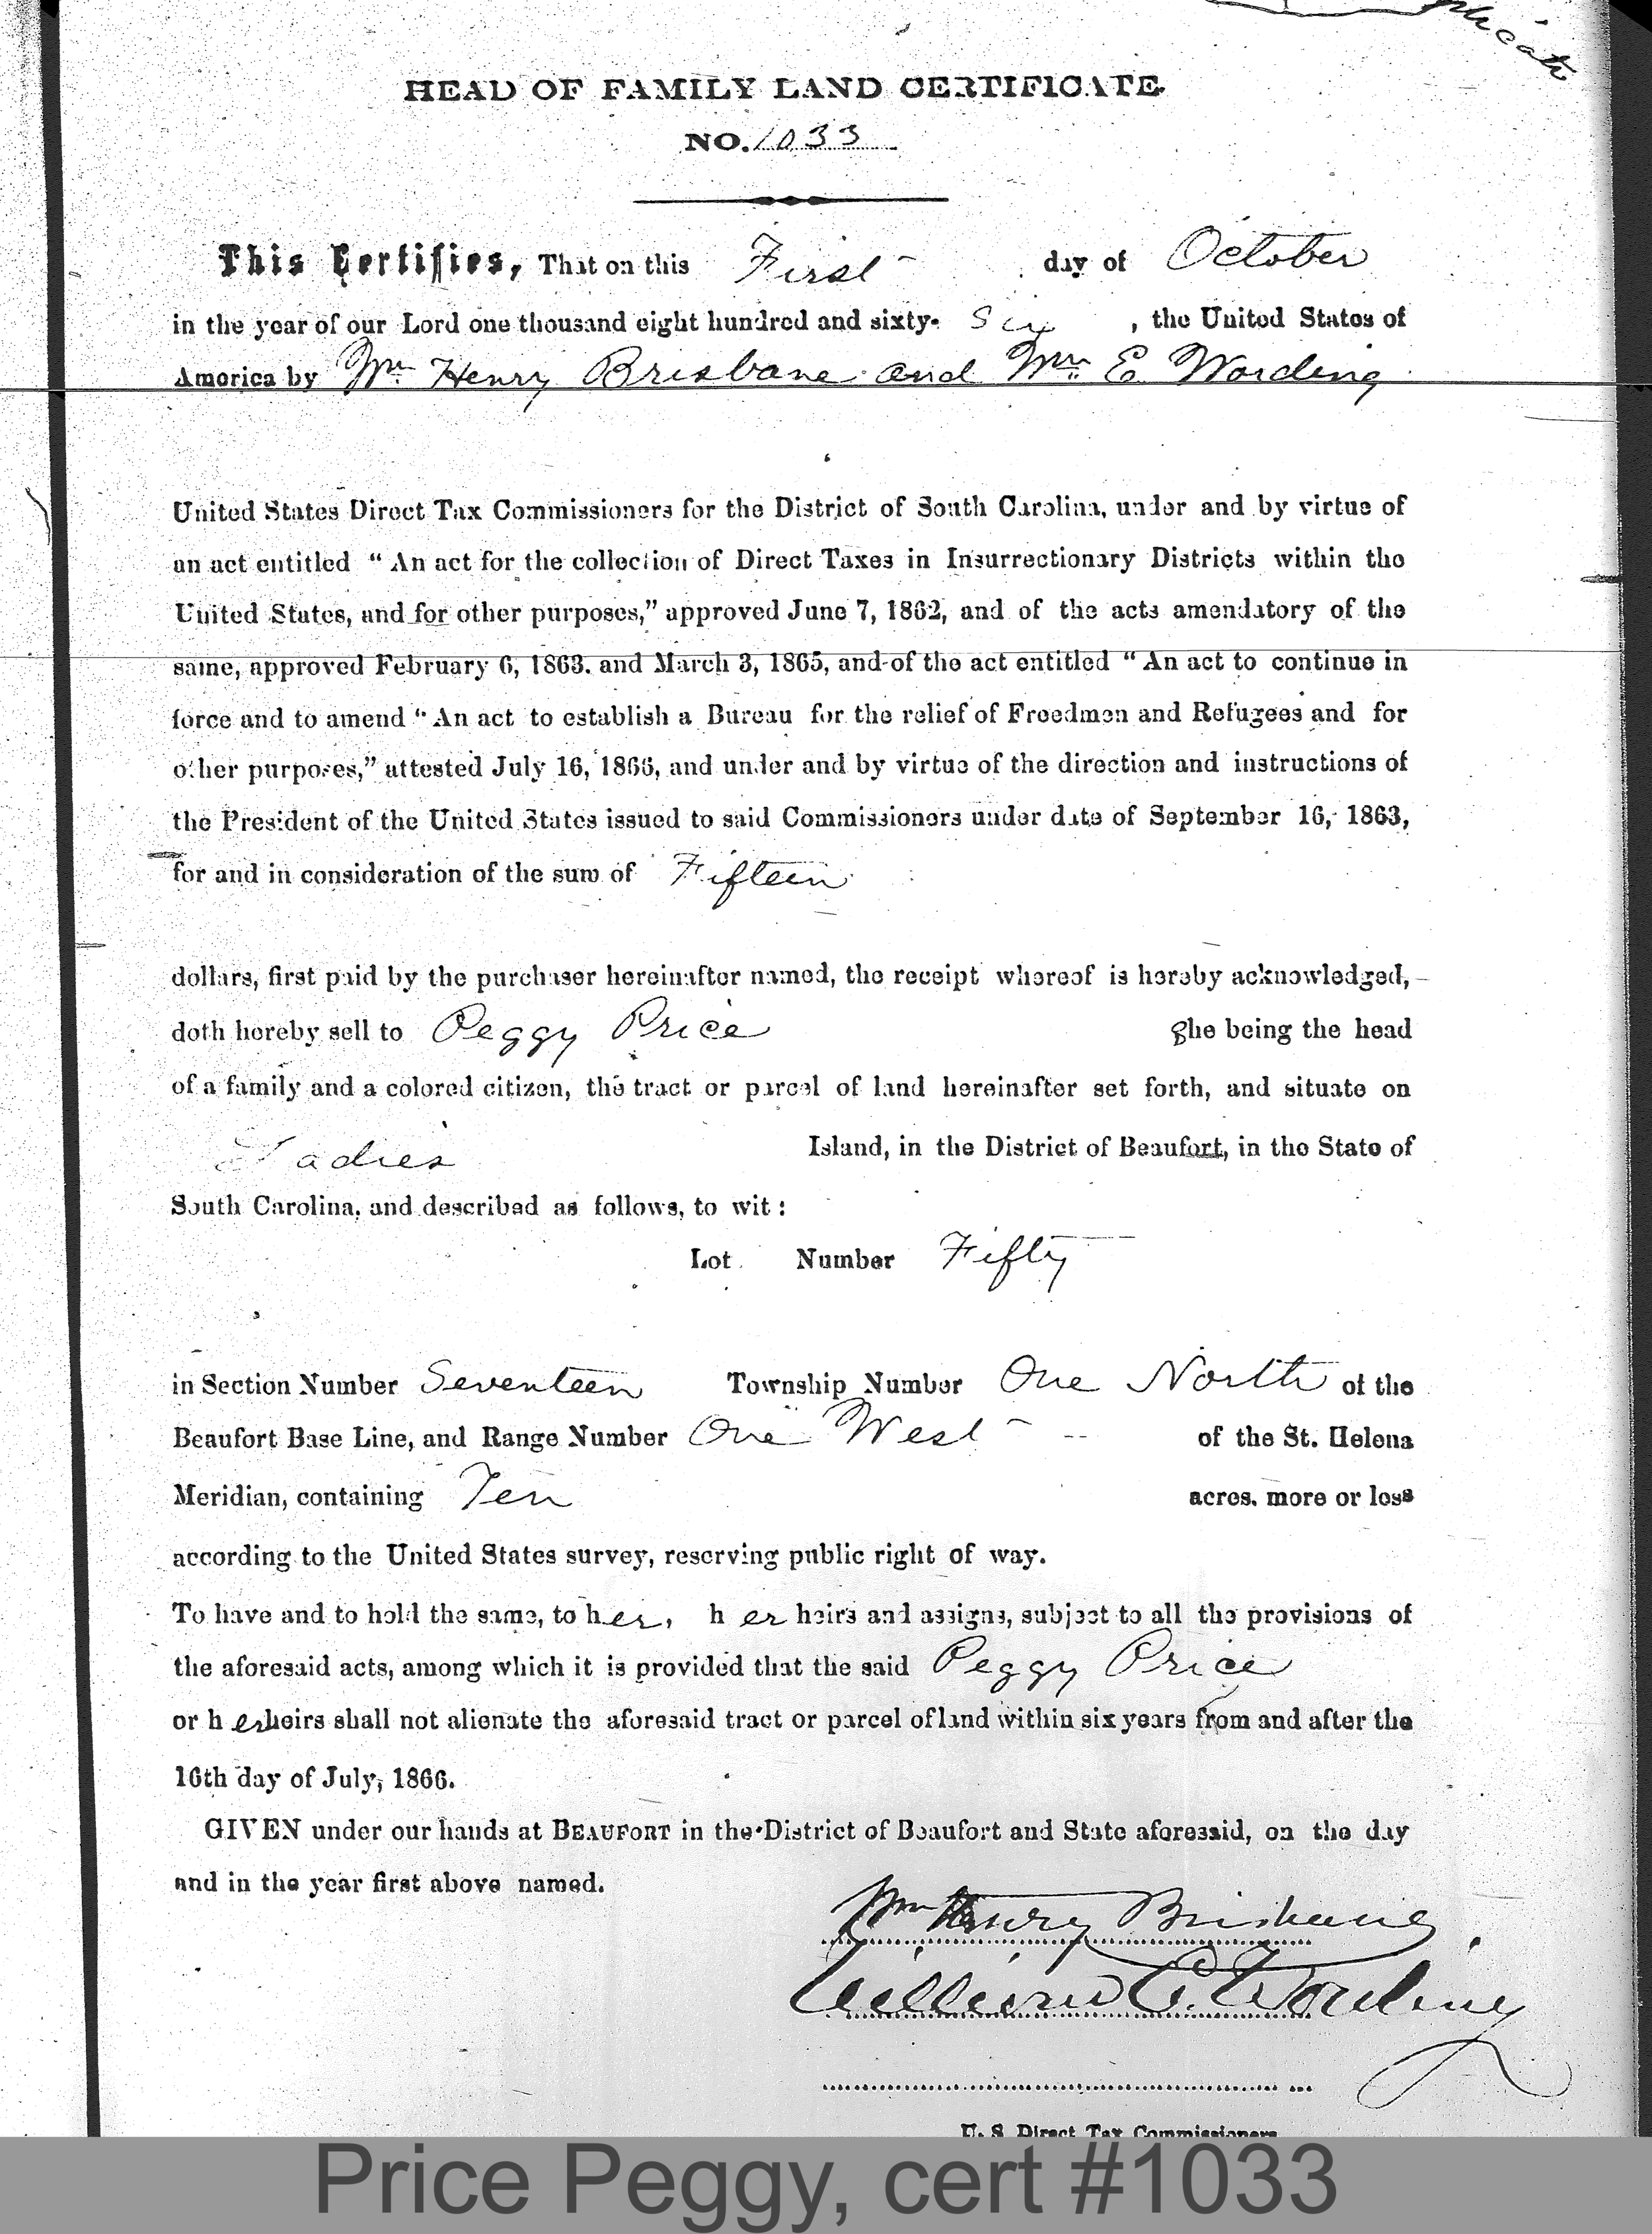 plicate
HEAD OF FAMILY LAND CERTIFICATE.
NO. 1033
This Certifies, That on this First day of October
in the year of our Lord one thousand eight hundred and sixty- Six , the United States of
America by Wm Henry Brisbane and Wm E Wording
United States Direct Tax Commissioners for the District of South Carolina, under and by virtue of
an act entitled “ An act for the collection of Direct Taxes in Insurrectionary Districts within the
United States, and for other purposes,” approved June 7, 1862, and of the acts amendatory of the
same, approved February 6, 1863. and March 3, 1865, and of the act entitled “ An act to continue in
force and to amend “ An act to establish a Bureau for the relief of Freedmen and Refugees and for
other purposes,” attested July 16, 1866, and under and by virtue of the direction and instructions of
the President of the United States issued to said Commissioners under date of September 16, 1863,
for and in consideration of the sum of Fifteen
dollars, first paid by the purchaser hereinafter named, the receipt whereof is hereby acknowledged,
doth hereby sell to Peggy Price She being the head
of a family and a colored citizen, the tract or parcel of land hereinafter set forth, and situate on
Ladies Island, in the District of Beaufort, in the State of
South Carolina, and described as follows, to wit :
Lot Number Fifty
in Section Number Seventeen Township Number One North of the
Beaufort Base Line, and Range Number One West of the St. Helena
Meridian, containing Ten acres. more or less
according to the United States survey, reserving public right of way.
To have and to hold the same, to her, her heirs and assigns, subject to all the provisions of
the aforesaid acts, among which it is provided that the said Peggy Price
or her heirs shall not alienate the aforesaid tract or parcel of land within six years from and after the
16th day of July, 1866.
GIVEN under our hands at BEAUFORT in the District of Beaufort and State aforesaid, on the day
and in the year first above named.
Wm Henry Brisbane
William E. Wording
U. S Direct Tax Commissioners
Price Peggy, cert #1033